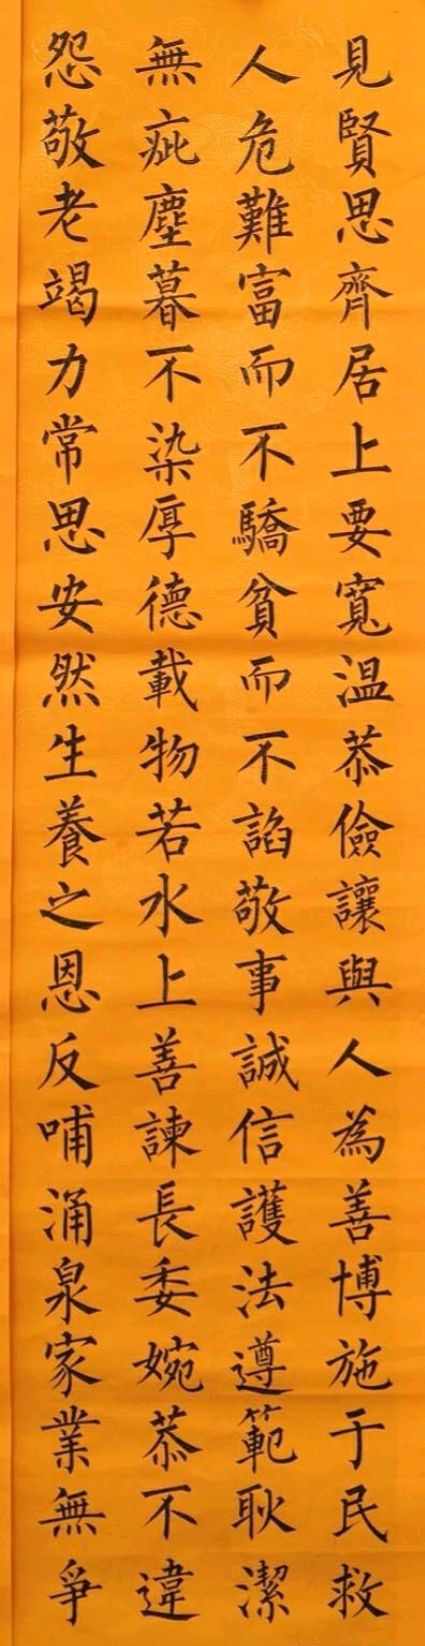 見賢思齊居上要寬温恭儉讓與人為善博施于民救
人危難富而不驕貧而不諂敬事誠信護法遵範耿潔
無疵塵暮不染厚德載物若水上善諫長委婉恭不違
怨敬老竭力常思安然生養之恩反哺涌泉家業無爭